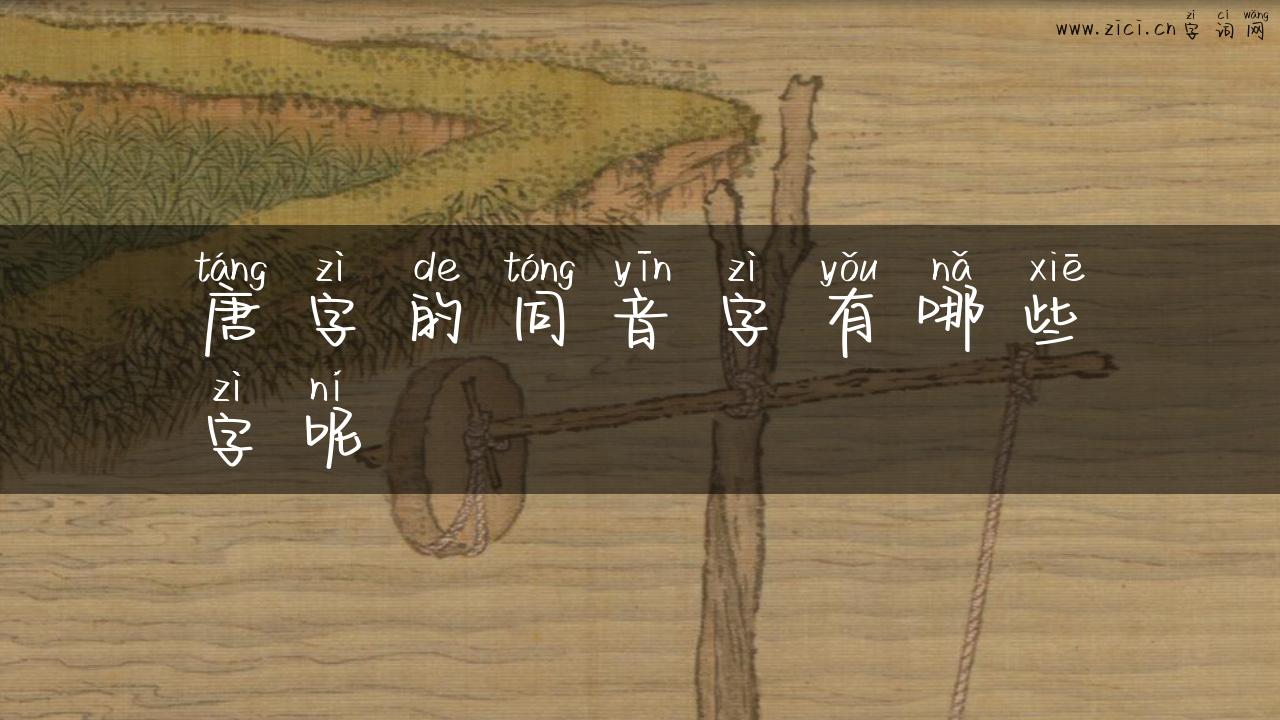 zì cí wǎng
www.zici.cn 字词网
táng zì de tóng yīn zì yǒu nǎ xiē
唐字的同音字有哪些
zì ní
字呢